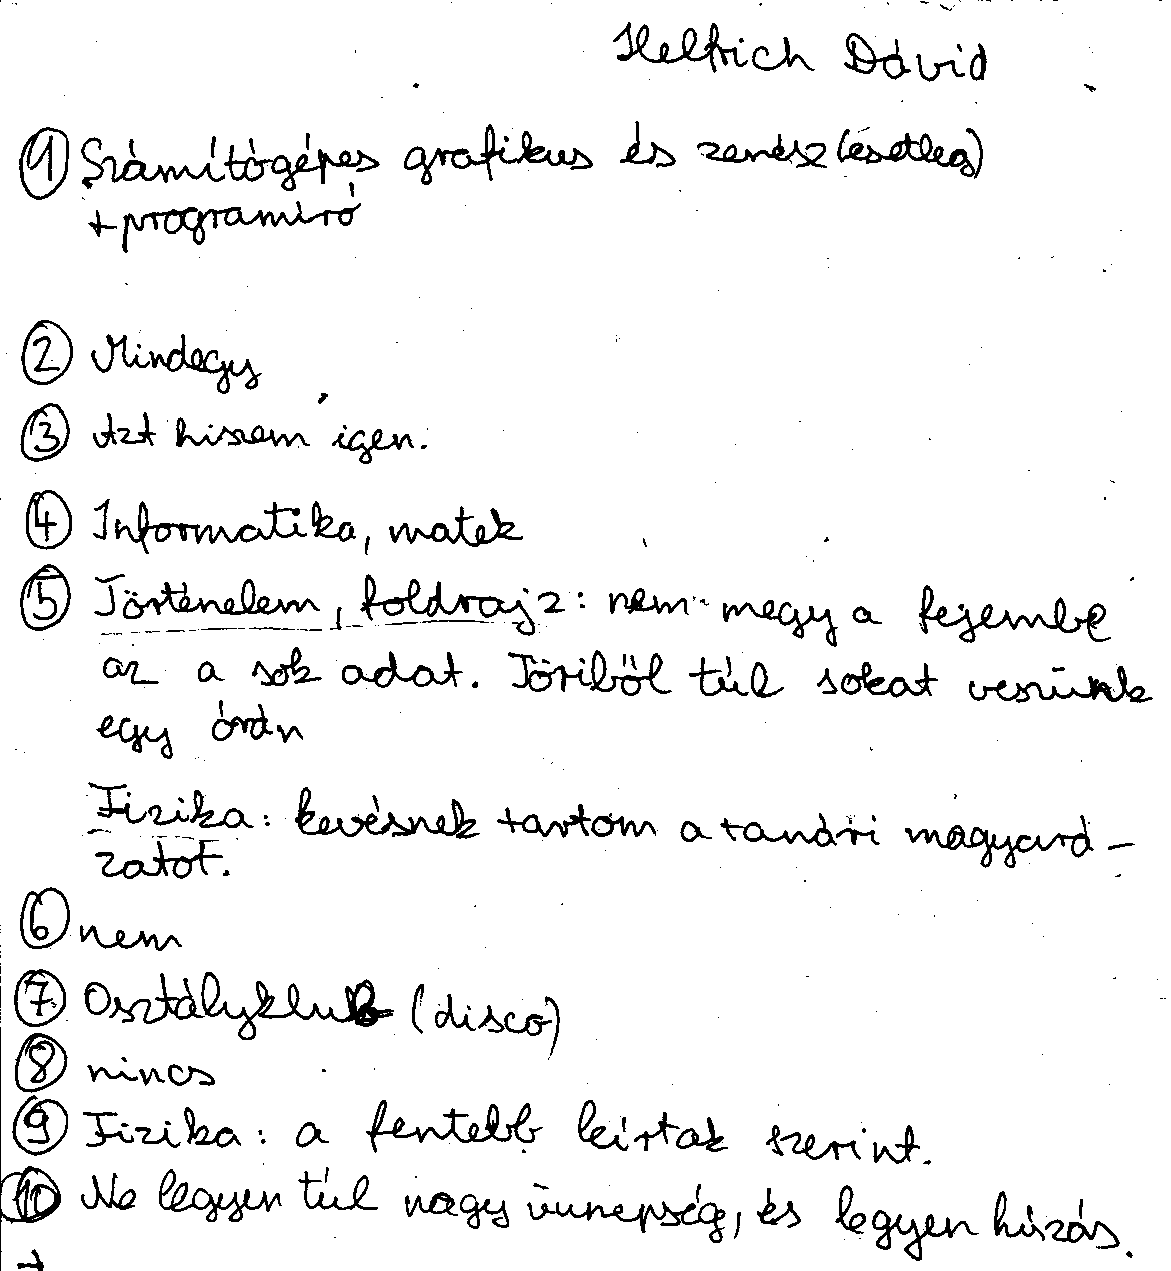 Helfrich Dávid
① Számítógépes grafikus és zenész (esetleg)
+ programíró
② Mindegy
③ Azt hiszem igen.
④ Informatika, matek
⑤ Történelem, földrajz: nem megy a fejembe
az a sok adat. Töriből túl sokat veszünk
egy órán
Fizika: kevésnek tartom a tanári magyará-
zatot.
⑥ nem
⑦ Osztályklub (disco)
⑧ nincs
⑨ Fizika: a fentebb leírtak szerint.
⑩ Ne legyen túl nagy ünnepség, és legyen húzás.